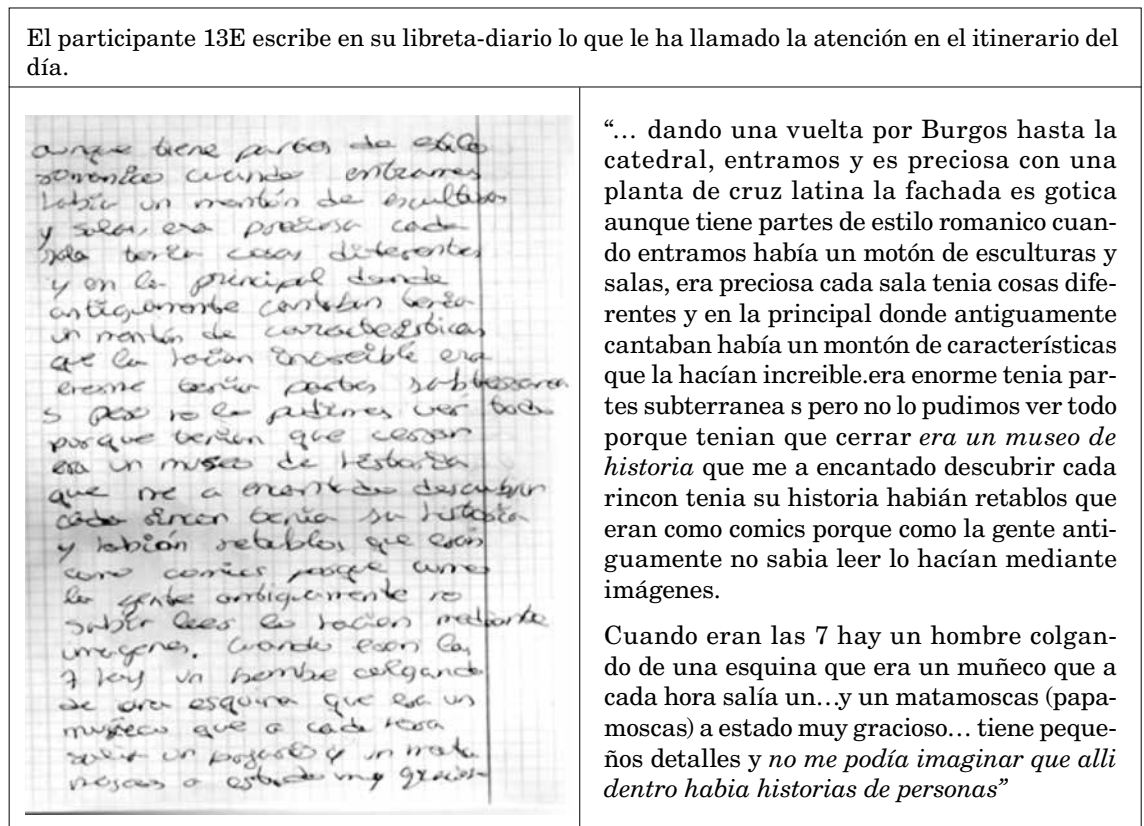 El participante 13E escribe en su libreta-diario lo que le ha llamado la atención en el itinerario del
día.
aunque tiene partes de estilo
romanico cuando entramos
había un montón de esculturas
y salas, era preciosa cada
sala tenía cosas diferentes
y en la principal donde
antiguamente cantaban tenía
un montón de características
que la hacian increible era
enorme tenía partes subterranea
s pero no lo pudimos ver todo
porque tenían que cerrar
era un museo de historia
que me a encantado descubrir
cada rincon tenía su historia
y habián retablos que eran
como comics porque como
la gente antiguamente no
sabía leer lo hacían mediante
imagenes. Cuando eran las
7 hay un hombre colgando
de una esquina que era un
muñeco que a cada hora
salía un y un mata
moscas a estado muy gracioso
“… dando una vuelta por Burgos hasta la
catedral, entramos y es preciosa con una
planta de cruz latina la fachada es gotica
aunque tiene partes de estilo romanico cuan-
do entramos había un motón de esculturas y
salas, era preciosa cada sala tenia cosas dife-
rentes y en la principal donde antiguamente
cantaban había un montón de características
que la hacían increible.era enorme tenia par-
tes subterranea s pero no lo pudimos ver todo
porque tenian que cerrar era un museo de
historia que me a encantado descubrir cada
rincon tenia su historia habián retablos que
eran como comics porque como la gente anti-
guamente no sabia leer lo hacían mediante
imágenes.
Cuando eran las 7 hay un hombre colgan-
do de una esquina que era un muñeco que a
cada hora salía un…y un matamoscas (papa-
moscas) a estado muy gracioso… tiene peque-
ños detalles y no me podía imaginar que alli
dentro habia historias de personas”